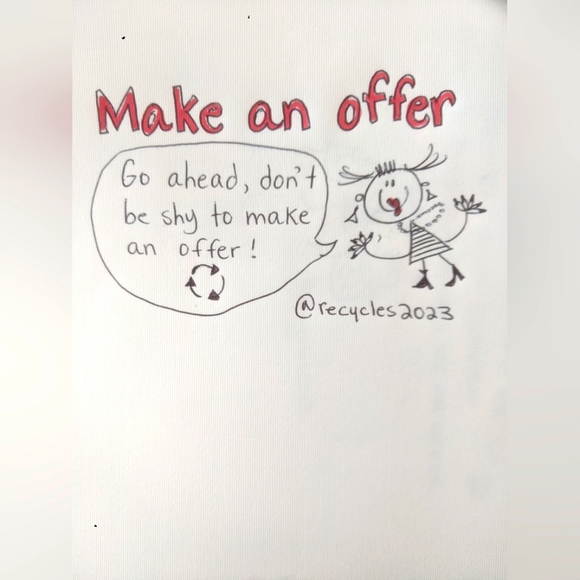 Make an offer
Go ahead, don't
be shy to make
an offer!
@recycles2023